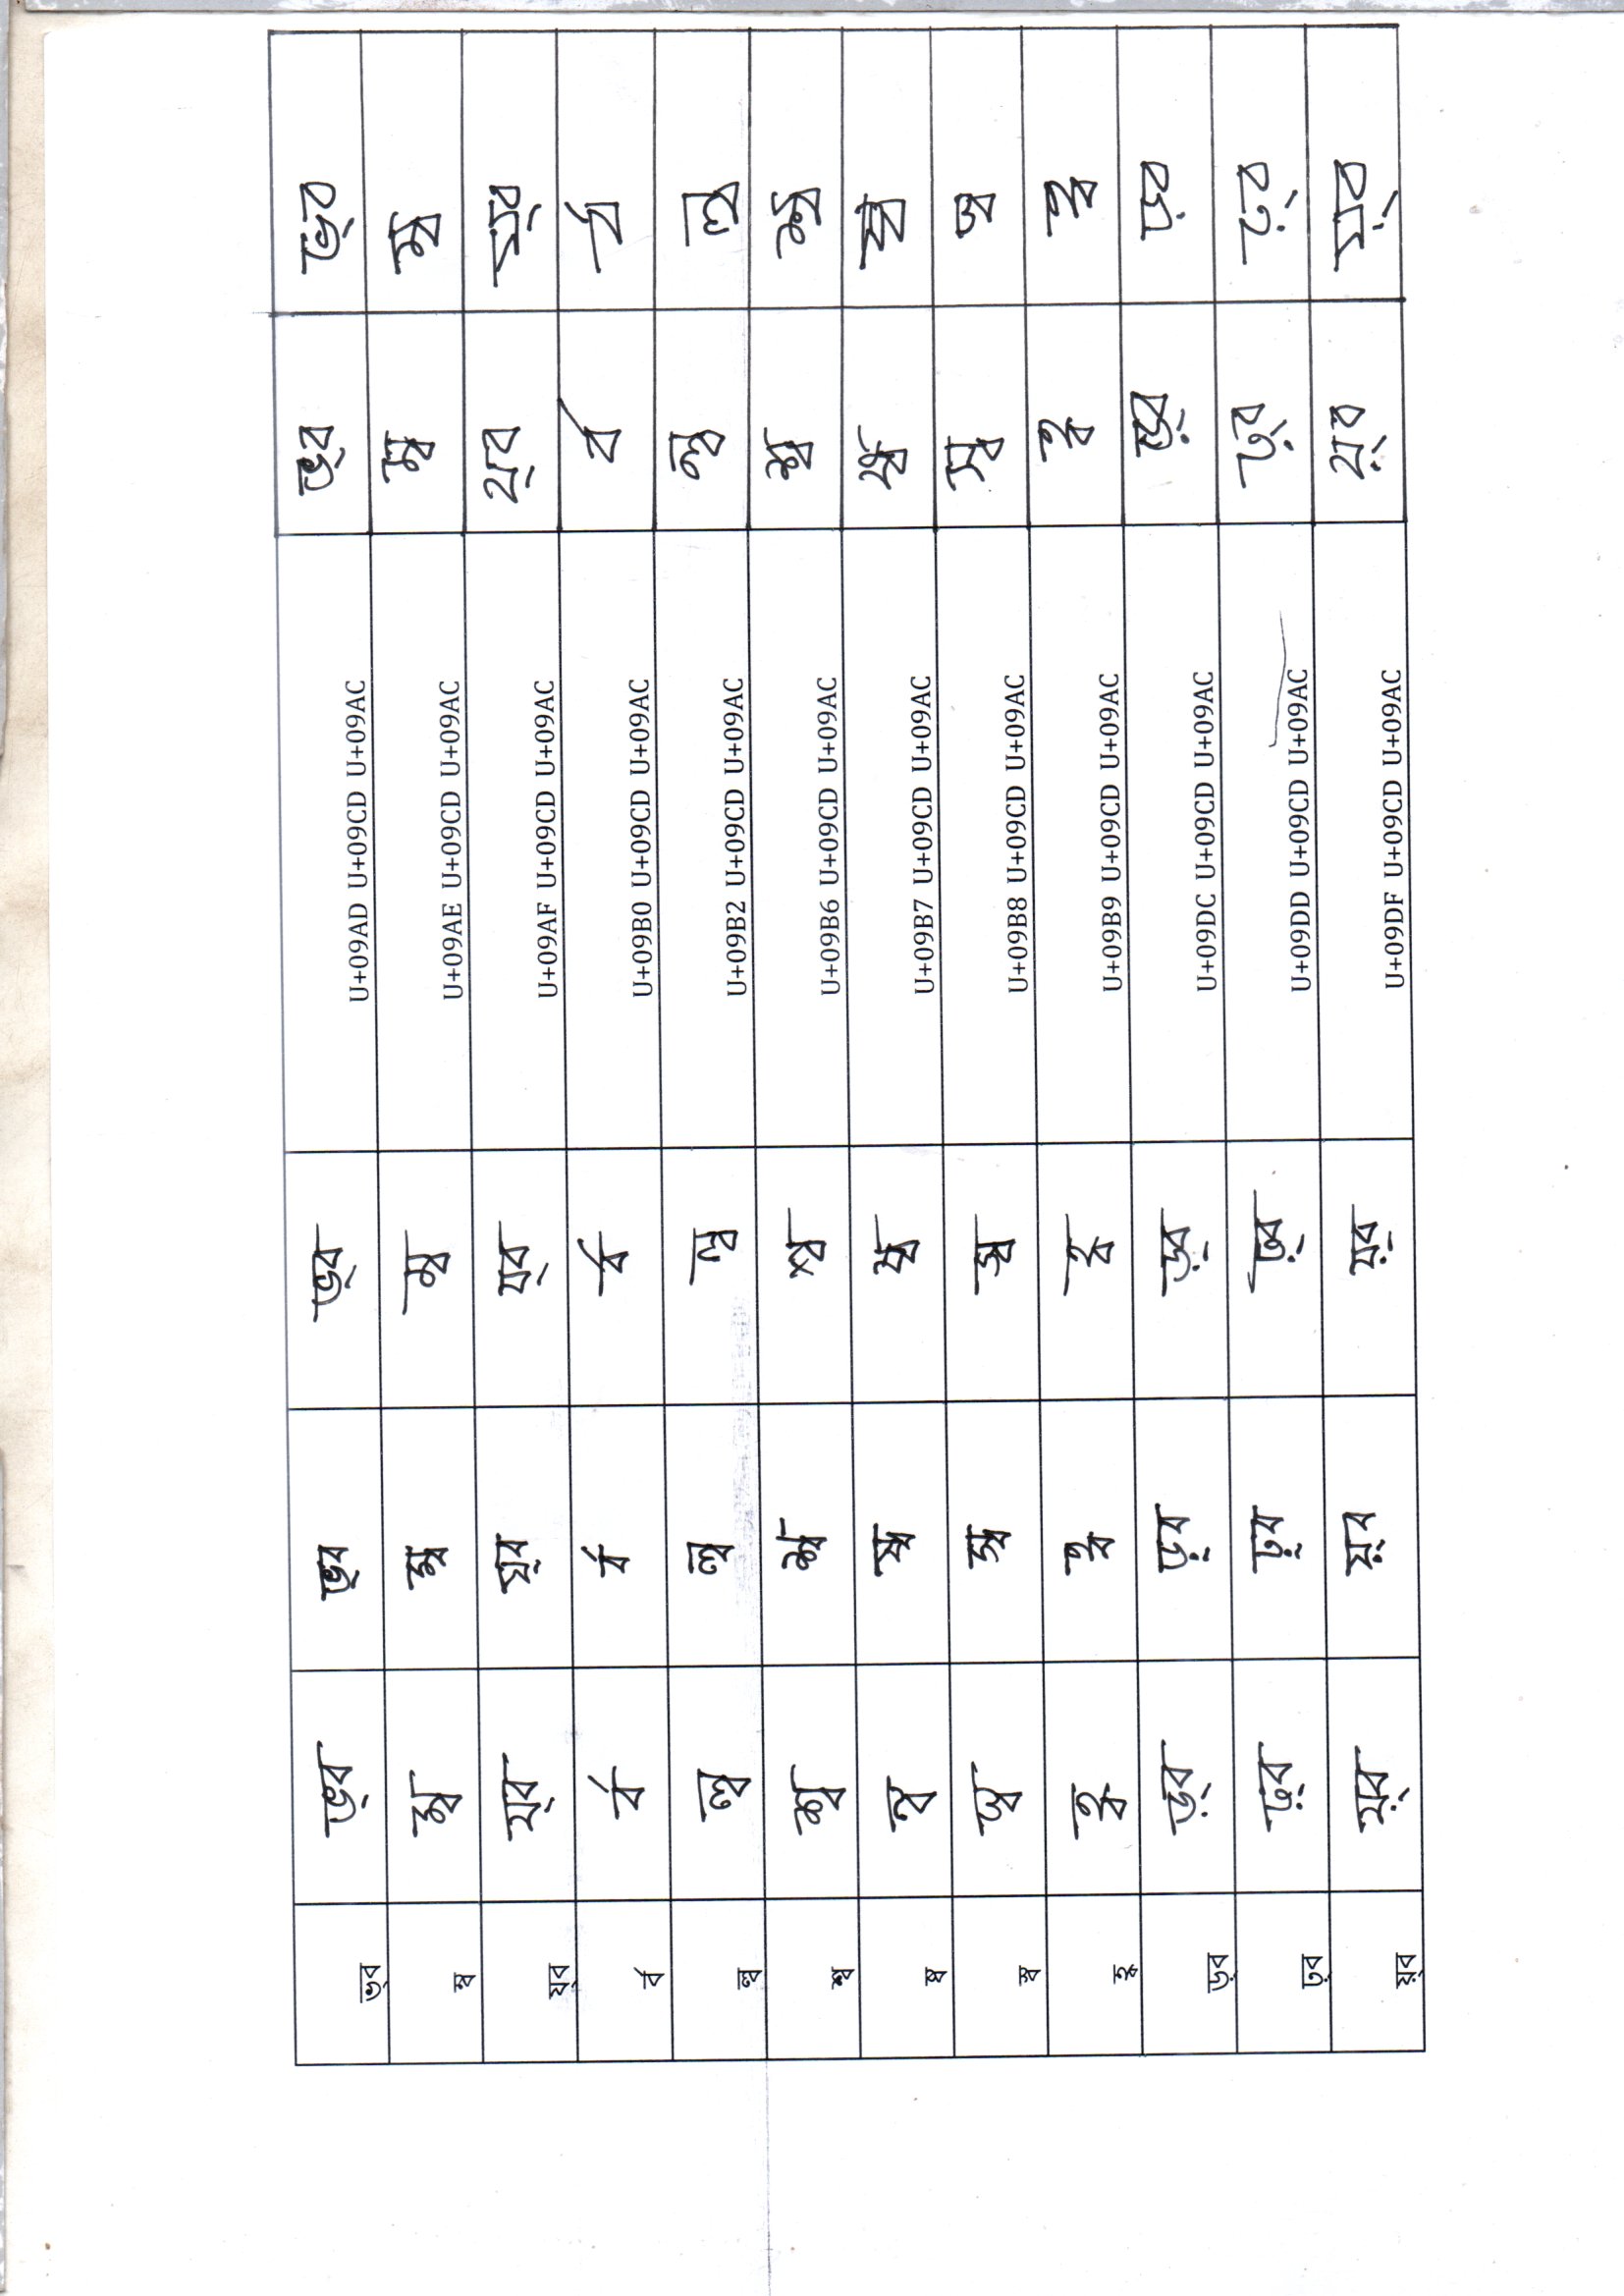 ভ্ব ভ্ব ভ্ব ভ্ব U+09AD U+09CD U+09AC ভ্ব ভ্ব
ম্ব ম্ব ম্ব ম্ব U+09AE U+09CD U+09AC ম্ব ম্ব
য্ব য্ব য্ব য্ব U+09AF U+09CD U+09AC য্ব য্ব
র্ব র্ব র্ব র্ব U+09B0 U+09CD U+09AC র্ব র্ব
ল্ব ল্ব ল্ব ল্ব U+09B2 U+09CD U+09AC ল্ব ল্ব
শ্ব শ্ব শ্ব শ্ব U+09B6 U+09CD U+09AC শ্ব শ্ব
ষ্ব ষ্ব ষ্ব ষ্ব U+09B7 U+09CD U+09AC ষ্ব ষ্ব
স্ব স্ব স্ব স্ব U+09B8 U+09CD U+09AC স্ব স্ব
হ্ব হ্ব হ্ব হ্ব U+09B9 U+09CD U+09AC হ্ব হ্ব
ড়্ব ড়্ব ড়্ব ড়্ব U+09DC U+09CD U+09AC ড়্ব ড়্ব
ঢ়্ব ঢ়্ব ঢ়্ব ঢ়্ব U+09DD U+09CD U+09AC ঢ়্ব ঢ়্ব
য়্ব য়্ব য়্ব য়্ব U+09DF U+09CD U+09AC য়্ব য়্ব